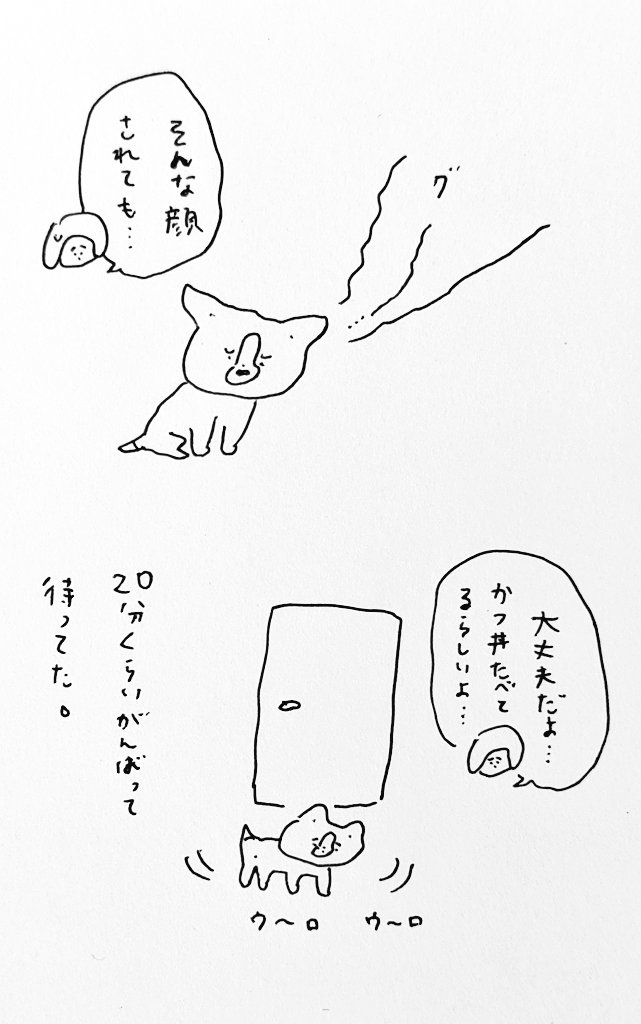 そんな顔
されても…
グ…
大丈夫だよ…
かつ丼たべて
るらしいよ…
ウ〜ロ ウ〜ロ
20分くらいがんばって
待ってた。